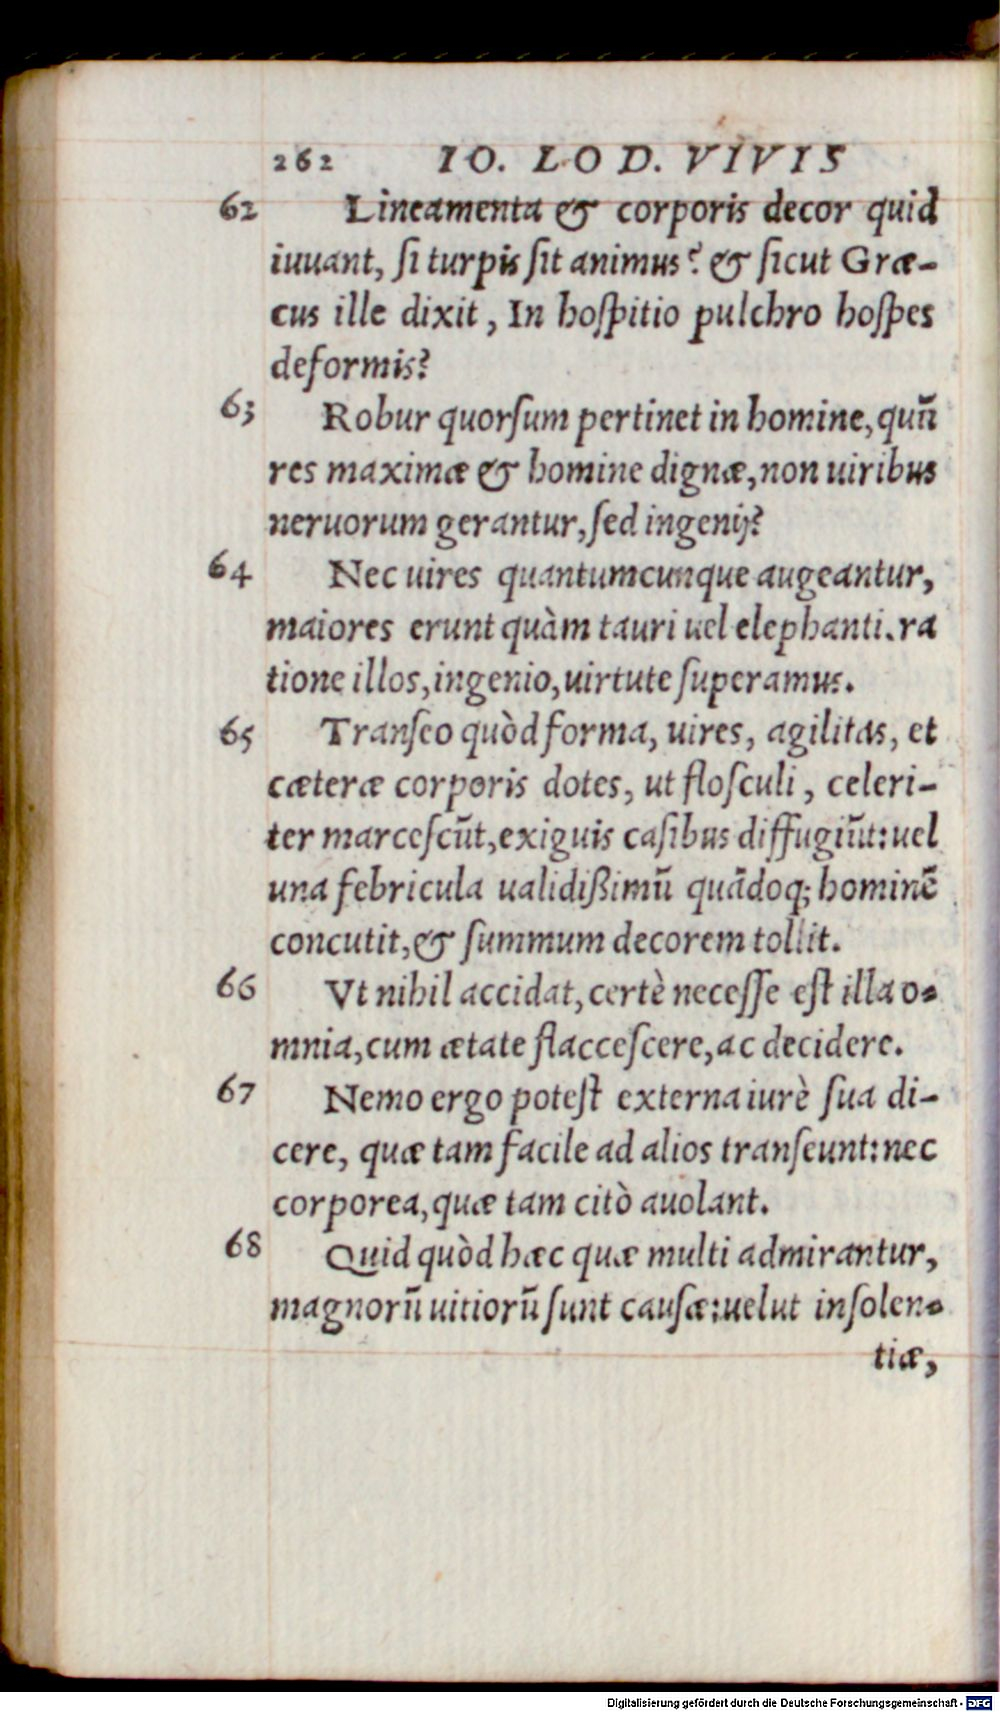 262 IO. LOD. VIVIS
62 Lineamenta & corporis decor quid
iuuant, ſi turpis ſit animus? & ſicut Græ-
cus ille dixit, In hoſpitio pulchro hoſpes
deformis?
63 Robur quorſum pertinet in homine, quũ
res maximæ & homine dignæ, non uiribus
neruorum gerantur, ſed ingenij?
64 Nec uires quantumcunque augeantur,
maiores erunt quàm tauri uel elephanti. ra
tione illos, ingenio, uirtute ſuperamus.
65 Tranſeo quòd forma, uires, agilitas, et
cæteræ corporis dotes, ut floſculi, celeri-
ter marceſcũt, exiguis caſibus diffugiũt: uel
una febricula ualidißimũ quãdoq; hominẽ
concutit, & ſummum decorem tollit.
66 Vt nihil accidat, certè neceſſe eſt illa o-
mnia, cum ætate flacceſcere, ac decidere.
67 Nemo ergo poteſt externa iurè ſua di-
cere, quæ tam facile ad alios tranſeunt: nec
corporea, quæ tam citò auolant.
68 Quid quòd hæc quæ multi admirantur,
magnorũ uitiorũ ſunt cauſæ: uelut inſolen-
tiæ,
Digitalisierung gefördert durch die Deutsche Forschungsgemeinschaft - DFG